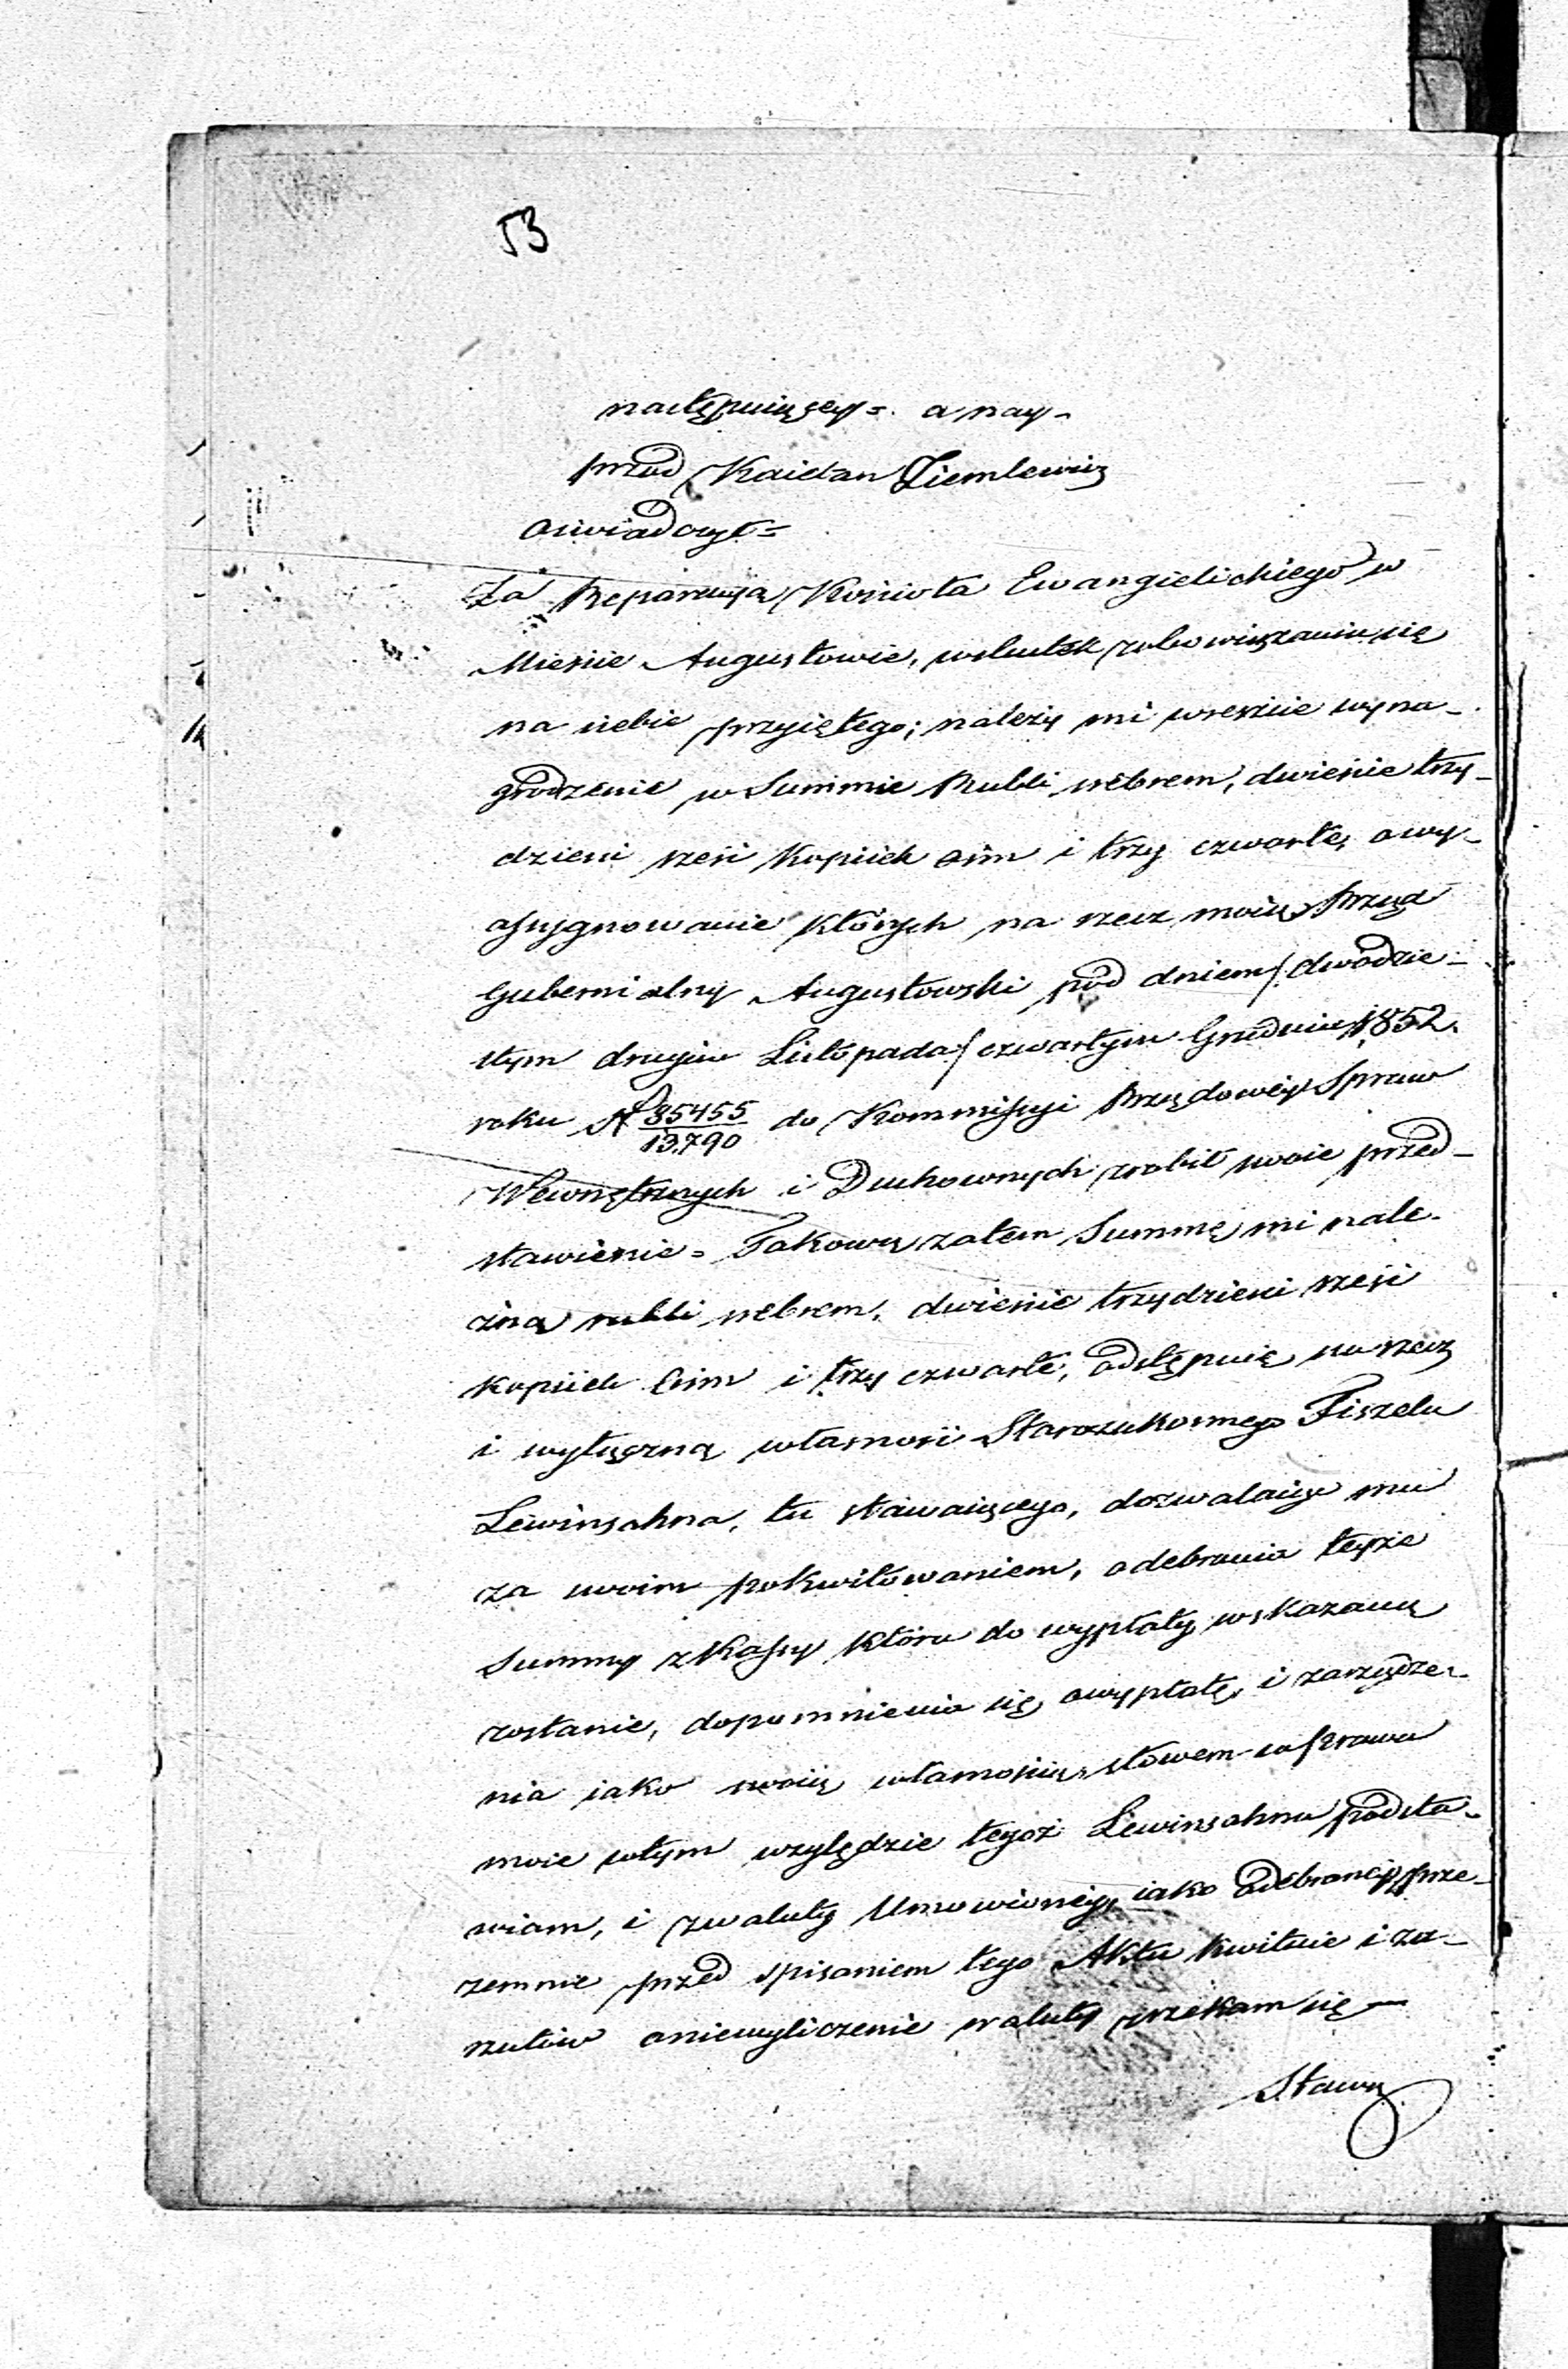 53
następuiący = a nay-
przod Kaietan Ziemlewicz
oswiadczył =
Za Reparacyą Kościoła Ewangielickiego w
Mieście Augustowie, wskutek zobowiązania się
na siebie przyiętego; należy mi wreście wyna-
grodzenie w Summie Rubli srebrem, dwieście trzy-
dzieści sześć kopiiek ośm i trzy czwarte, o wy-
assygnowanie których na rzecz moią, Rząd
Gubernialny Augustowski pod dniem / dwódzie-
stym drugim Listopada / czwartym Grudnia 1852.
roku N 35455/13.790 do Kommissyi Rządowéy Spraw
Wewnętrznych i Duchownych zrobił swoie przed-
stawienie = Takową zatem Summę mi nale-
żną rubli srebrem, dwieście trzydzieści sześć
kopiiek ośm i trzy czwarte, odstępuię na rzecz
i wyłączną własność Starozakonnego Fiszela
Lewinsohna, tu stawaiącego, dozwalaiąc mu
za swoim pokwitowaniem, odebrania teyże
Summy z Kassy która do wypłaty wskazaną
zostanie, dopomnienia się o wypłatę, i zarządze-
nia iako swoią własnością, słowem w prawa
moie w tym względzie tegoż Lewinsohna podsta-
wiam, i z waluty Umowionéy, iako odebranéy prze-
zemnie przed spisaniem tego Aktu kwituie i za-
rzutów o niewyliczenie waluty zrzekam się —
Stawa